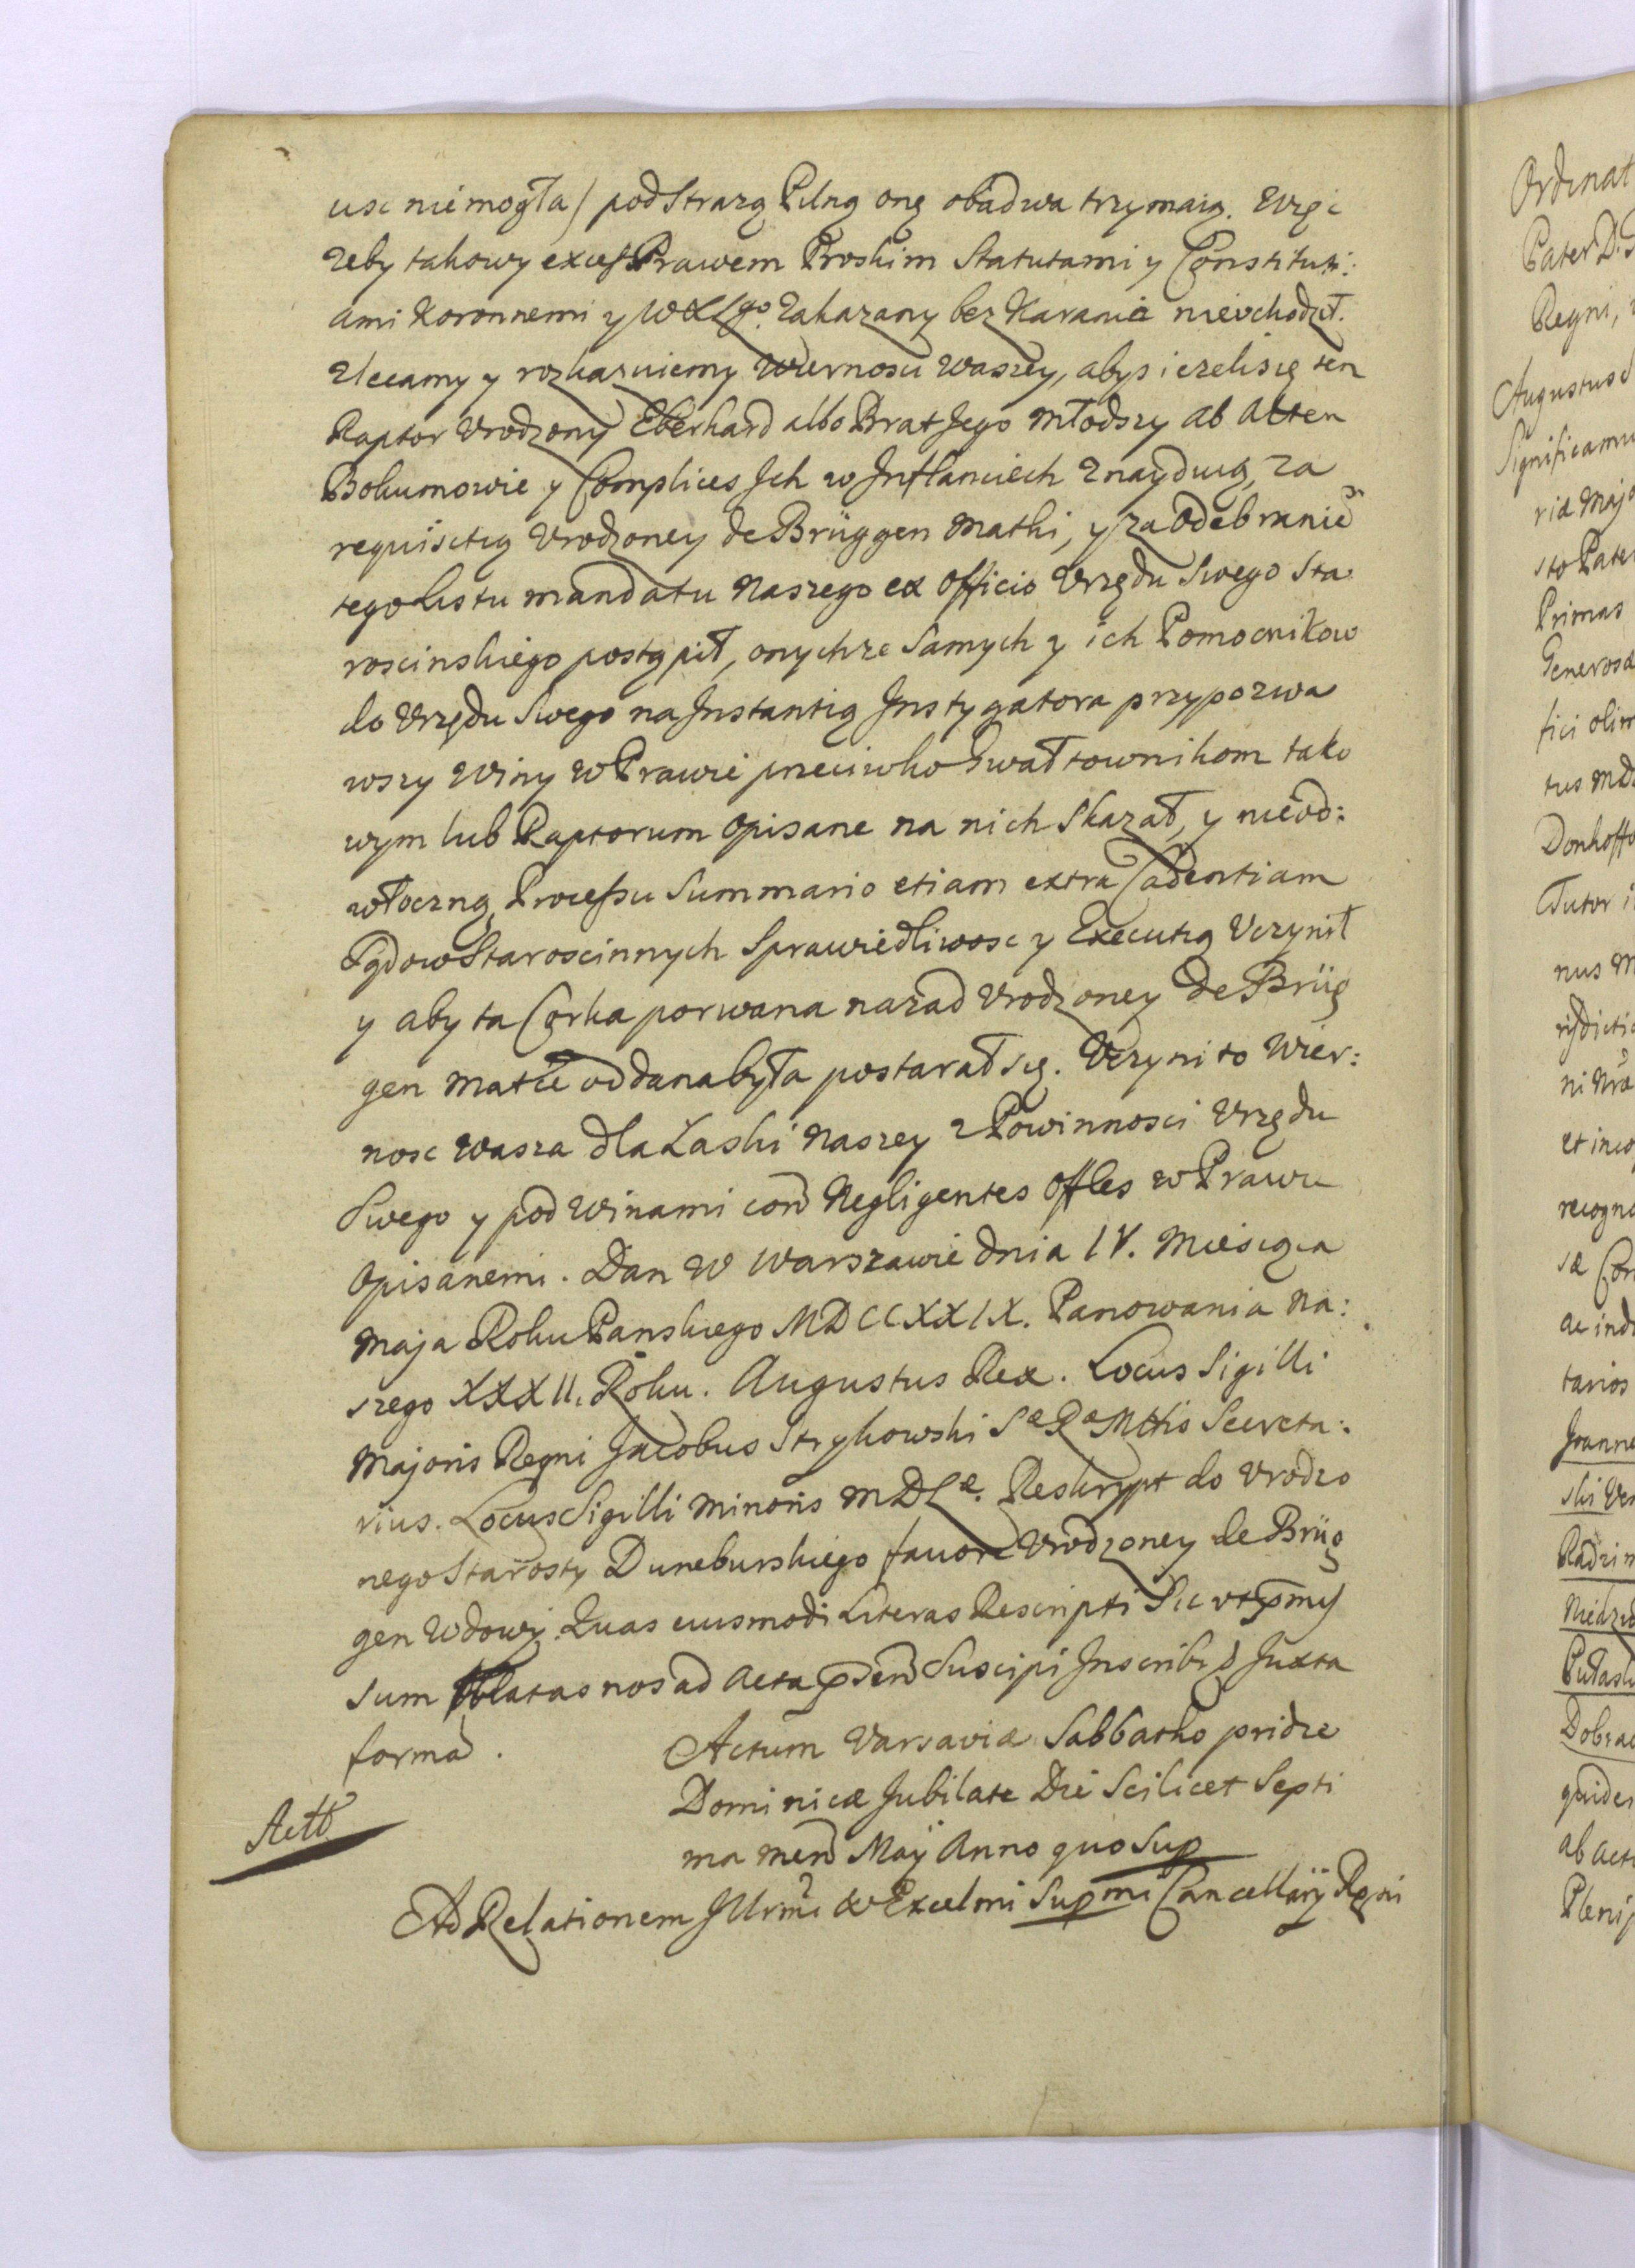 usc niemogła) pod Strazą Pilną onę obadwa trzymaią. Więc
zeby takowy excess Prawem Boskim Statutami y Constituti:
ami Koronnemi y WXLgo. Zakazany bez Karania nieuchodził.
Zlecamy y rozkazuiemy Wiernosci Waszey, abys iezeli się ten
Raptor Urodzony Eberhard albo Brat Jego Młodszy ab Alten
Bokumowie y Complices Jch w Jnflanciech znayduią, za
requisitią Urodzoney de Brüggen Matki, y za Odebraniem
tego Listu mandatu Naszego ex Officio Urzędu Swego Sta
roscinskiego postąpił, onychze Samych y ich Pomocnikow
do Urzędu Swego na Jnstantią Jnstygatora przypozwa
wszy Winy w Prawie przeciwko Gwałtownikom tako
wym lub Raptorum Opisane na nich Skazał, y nieod:
włoczną Processu Summario etiam extra Cadentiam
Sądow Staroscinnych Sprawiedliwosc y Executią Uczynił
y aby ta Corka porwana nazad Urodzoney de Brüg
gen Matce oddana była postarał się. Uczyni to Wier:
nosc Wasza dla Łaski Naszey z Powinnosci Urzędu
Swego y pod Winami con Negligentes Offles w Prawie
Opisanemi. Dan w Warszawie dnia IV. Miesiąca
Maja Roku Panskiego MDCCXXIX. Panowania Na:
szego XXXII. Roku. Augustus Rex. Locus Sigilli
Majoris Regni Jacobus Strykowski Sæ Ræ Mttis Secreta:
rius. Locus Sigilli Minoris MDLæ. Reskrypt do Urodzo
nego Starosty Duneburskiego favore Urodzoney de Brüg
gen Wdowy. Quas eiusmodi Literas Rescripti Sic ut pmsj
sum Oblatas nos ad Acta psen Suscipi Jnscribi Juxta
forma.
Actum Varsaviæ Sabbatho pridie
Dominicæ Jubilate Die Scilicet Septi
ma men Maÿ Anno quo Sup
Actt
Ad Relationem Jllrmi & Excelmi Supmi Cancellarÿ Regni
Ordinat
Pater D.
Regni,
Augustus
Significamus
ria
sto Pate
Primas
Generosæ
fici olim
tus MD
Donhoff
Tutor
nus
ni
et
recogno
ac
tarios
Joanne
Radzi
Dobra
quidem
ab Acti
Pleni